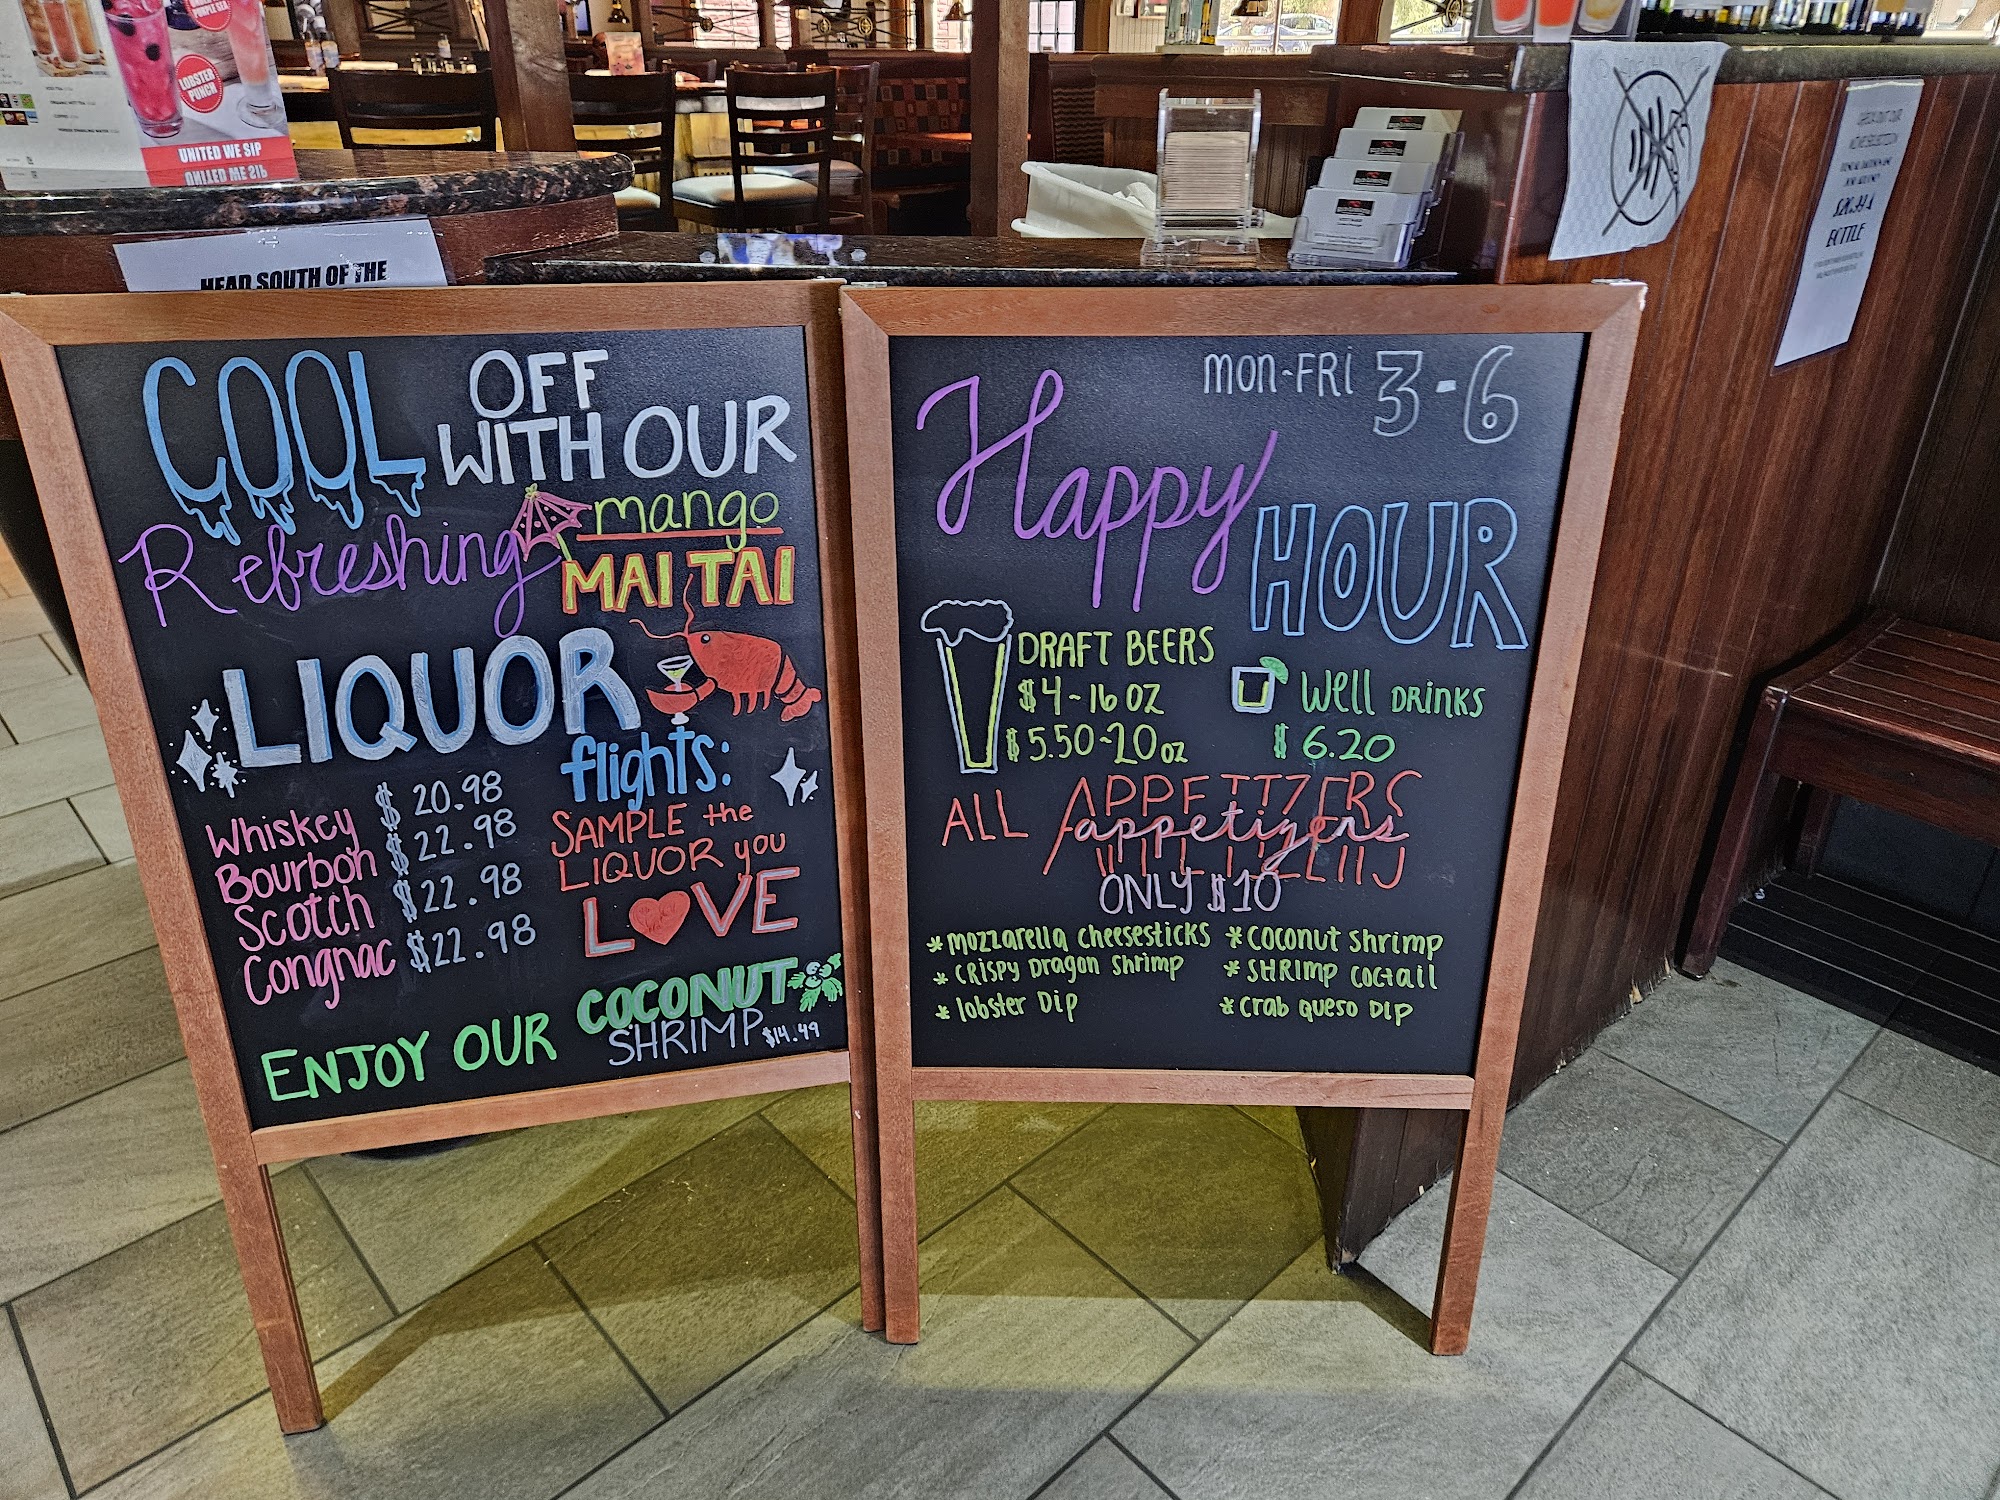 LOBSTER
PUNCH
UNITED WE SIP
HEAD SOUTH OF THE
COOL OFF
WITH OUR
Refreshing mango
MAI TAI
LIQUOR
flights:
Whiskey $20.98
Bourbon $22.98
Scotch $22.98
Congnac $22.98
SAMPLE the
LIQUOR you
LOVE
ENJOY OUR COCONUT
SHRIMP $14.49
MON-FRI 3-6
Happy
HOUR
DRAFT BEERS
$4-16 OZ
$5.50-20 oz
Well DRINKS
$6.20
ALL appetizers
ONLY $10
*Mozzarella Cheesesticks
*Crispy Dragon Shrimp
*lobster Dip
*Coconut Shrimp
*SHRImp Coctail
*Crab Queso DIP
CHECK OUT OUR
BOTTLE